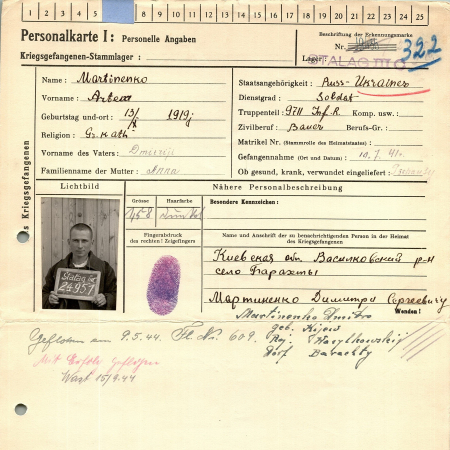 1 2 3 4 5 8 9 10 11 12 13 14 15 16 17 18 19 20 21 22 23 24 25
Personalkarte I: Personelle Angaben
Beschriftung der Erkennungsmarke
Kriegsgefangenen-Stammlager:
Nr. 322
Lager: STALAG III C
des Kriegsgefangenen
Name: Martinenko
Staatsangehörigkeit: Russ- Ukrainer
Vorname: Artem
Dienstgrad: Soldat
Geburtstag und -ort: 13/ 1919
Truppenteil: Inf. R. Komp. usw.:
Religion: Gr. kath.
Zivilberuf: Bauer Berufs-Gr.:
Vorname des Vaters: Dmitrij
Matrikel Nr. (Stammrolle des Heimatstaates):
Familienname der Mutter: Anna
Gefangennahme (Ort und Datum): 10.7.41.
Ob gesund, krank, verwundet eingeliefert:
Lichtbild
Nähere Personalbeschreibung
Grösse
Haarfarbe
Besondere Kennzeichen:
1,58
Dunkel
Fingerabdruck
des rechten! Zeigefingers
Name und Anschrift der zu benachrichtigenden Person in der Heimat
des Kriegsgefangenen
Stalag
24951
Киевская обл. Василковский р-н
село Барахты
Мартиненко Димитри Сергеевичу
Wenden!
Martinenko Dmitro
Geflohen am 9.5.44. Nr. 609.
geb. Kijew
Raj. Wasylkowskij
Dorf Barachty
15/9.44